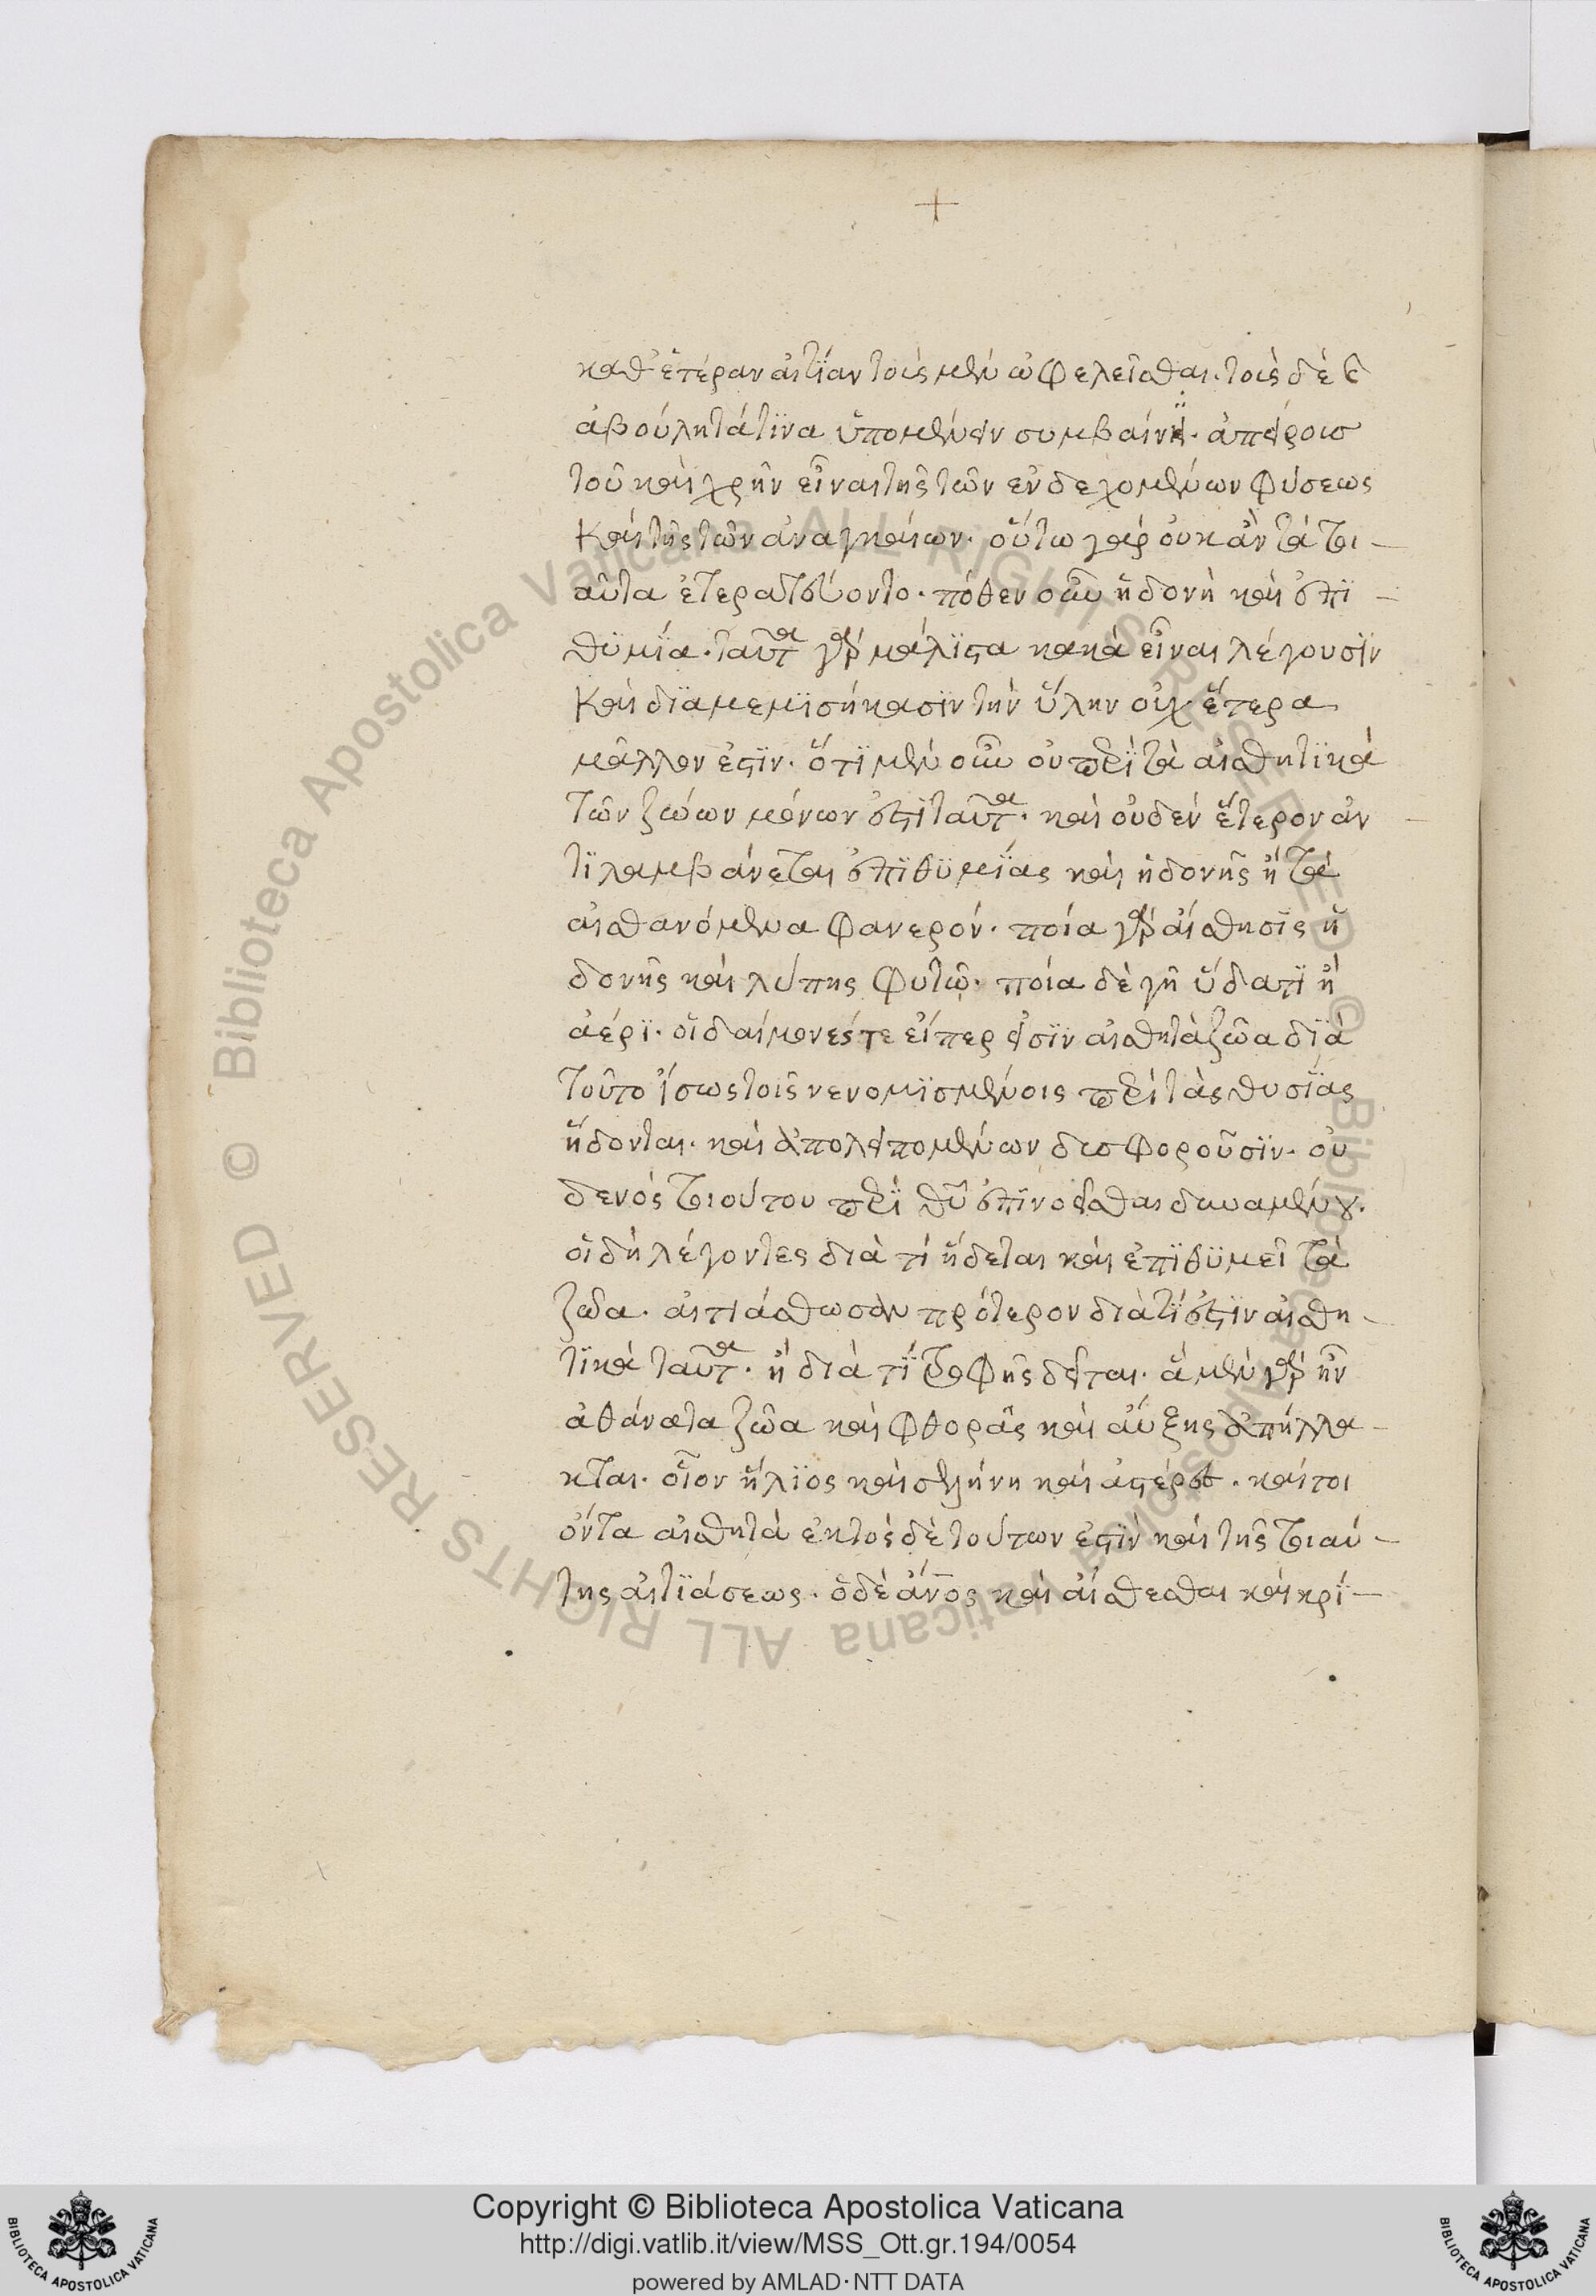 +
καθ' ἑτέραν αἰτίαν τοῖς μὲν ὠφελεῖσθαι. τοῖς δὲ
ἀβούλητά τινα ὑπομένειν συμβαίνῃ.
τοῦ καὶ χρῆν εἶναι τῆς τῶν ἐνδεχομένων φύσεως
καὶ τῆς τῶν ἀναγκαίων. οὕτω γὰρ οὐκ ἂν τὰ τοι-
αῦτα πόθεν οὖν ἡδονὴ καὶ ἐπι-
θυμία. ταῦτα γὰρ μάλιστα κακὰ εἶναι λέγουσιν
καὶ διαμεμισήκασιν τὴν ὕλην οὐχ ἕτερα
μᾶλλόν ἐστιν. ὅτι μὲν οὖν οὐ περὶ τὰ αἰσθητικὰ
τῶν ζώων μόνων ἐστὶ ταῦτα. καὶ οὐδὲν ἕτερον ἀν
τιλαμβάνεται ἐπιθυμίας καὶ ἡδονῆς ἢ τὰ
αἰσθανόμενα φανερόν. ποία γὰρ αἴσθησις ἡ
δονῆς καὶ λύπης φυτῷ. ποία δὲ γῇ ὕδατι ἢ
ἀέρι. οἱ δαίμονές τε εἴπερ εἰσὶν αἰσθητὰ ζῶα διὰ
τοῦτο ἴσως τοῖς νενομισμένοις περὶ τὰς θυσίας
ἥδονται. καὶ ἀπολειπομένων δυσφοροῦσιν. οὐ
δενὸς τοιούτου περὶ θεοῦ ἐπινοεῖσθαι δυναμένου.
οἱ δὴ λέγοντες διὰ τί ἥδεται καὶ ἐπιθυμεῖ τὰ
ζῶα. αἰτιάσθωσαν πρότερον διὰ τί ἐστιν αἰσθη-
τικὰ ταῦτα. ἢ διὰ τί τροφῆς δεῖται. ἃ μὲν γὰρ ἦν
ἀθάνατα ζῶα καὶ φθορᾶς καὶ αὔξης ἀπήλλα-
κται. οἷον ἥλιος καὶ σελήνη καὶ ἀστέρες. καίτοι
ὄντα αἰσθητὰ ἐκτὸς δὲ τούτων ἐστὶν καὶ τῆς τοιαύ-
της αἰτιάσεως. ὁ δὲ ἄνος καὶ αἴσθεσθαι καὶ κρί-
Copyright © Biblioteca Apostolica Vaticana
http://digi.vatlib.it/view/MSS_Ott.gr.194/0054
powered by AMLAD·NTT DATA
BIBLIOTECA APOSTOLICA VATICANA
BIBLIOTECA APOSTOLICA VATICANA
© Biblioteca Apostolica Vaticana ALL RIGHTS RESERVED © Biblioteca Apostolica Vaticana ALL RIGHTS RESERVED